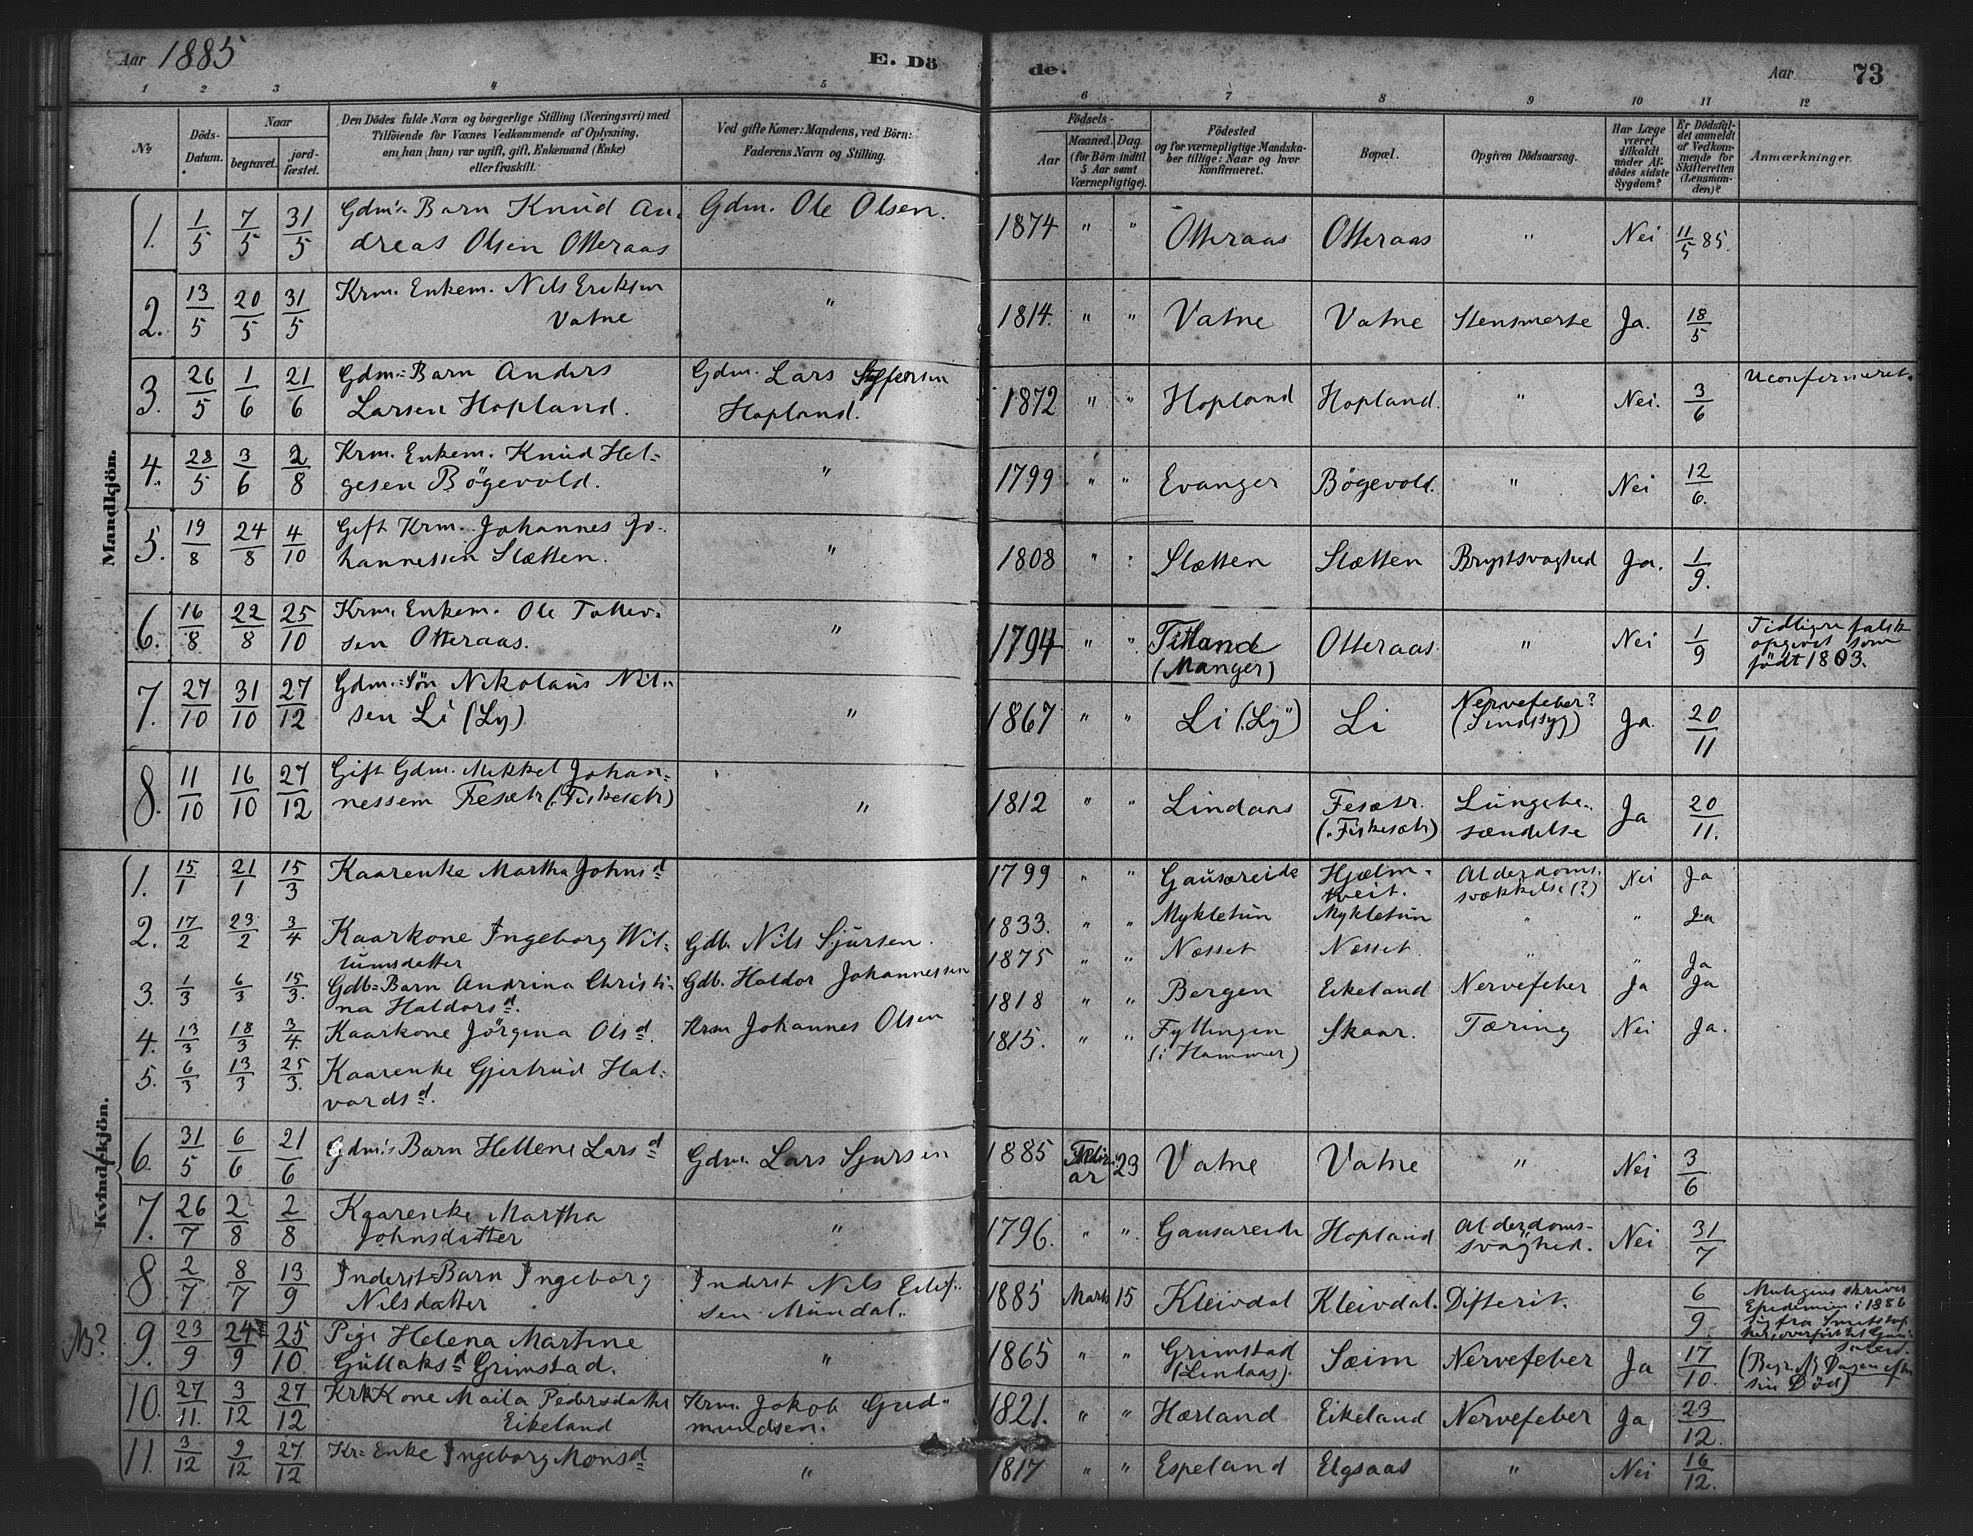 Aar 1885 E. Dö de. Aar 73
1 2 3 4 5 6 7 8 9 10 11 12
No. Döds-Datum. Naar begravet. jordfæstet.
Den Dödes fulde Navn og borgerlige Stilling (Næringsvei) med
Tilföiende for Voxnes Vedkommende af Oplysning,
om han (hun) var ugift, gift, Enkemand (Enke)
eller fraskilt.
Ved gifte Koner: Mandens, ved Börn:
Faderens Navn og Stilling.
Födsels-
Aar Maaned. Dag.
(for Börn indtil
5 Aar samt
Værnepligtige).
Födested
og for værnepligtige Mandska-
ber tillige: Naar og hvor
konfirmeret.
Bopæl.
Opgiven Dödsaarsag.
Har Læge
været
tilkaldt
under Af-
dödes sidste
Sygdom?
Er Dödsfal-
det anmeldt
af Vedkom-
mende for
Skifteretten
(Lensman-
den)?
Anmærkninger.
Mandkjön.
1. 1/5 7/5 31/5 Gdm's Barn Knud An- Gdm. Ole Olsen. 1874 " " Otteraas Otteraas " Nei 11/5 85.
dreas Olsen Otteraas
2. 13/5 20/5 31/5 Krm. Enkem. Nils Eriksen " 1814. " " Vatne Vatne Stensmerte Ja. 18/5
Vatne
3. 26/5 1/6 21/6 Gdm: Barn Anders Gdm. Lars 1872 " " Hopland Hopland. " Nei. 3/6 Uconfirmeret.
Larsen Hopland. Hopland.
4. 28/5 3/6 2/8 Krm. Enkem. Knud Hel- " 1799 " " Evanger Bögevold. " Nei 12/6.
gesen Bögevold.
5. 19/8 24/8 4/10 Gift Krm. Johannes Jo- " 1808 " " Slætten Slætten Brystsvaghed Ja. 1/9.
hannessen Slætten.
6. 16/8 22/8 25/10 Krm. Enkem. Ole Tollev- " 1794 " " Titland Otteraas " Nei 1/9 Tidligere falsk
sen Otteraas. (Manger) opgivet som
födt 1803.
7. 27/10 31/10 27/12 Gdm.=Sön Nikolaus Nil- " 1867 " " Li (Ly) Li Nervefeber? Ja. 20/11
sen Li (Ly) (Sindssyg)
8. 11/10 16/10 27/12 Gift Gdm. Mikkel Johan- " 1812 " " Lindaas Fesætr. Lungebe- Ja 20/11.
nessem Fesætr (Fiskesætr) (Fiskesætr) sændelse
Kvindekjön.
1. 15/1 21/1 15/3 Kaarenke Martha Johnsd 1799 " " Gausereide Hjælm- Alderdoms- Nei Ja
tveit. svækkelse (?)
2. 17/2 23/2 3/4 Kaarkone Ingeborg Wil- Gdb. Nils Sjursen. 1833. " " Mykletun Mykletun " " Ja
lumsdatter
3. 1/3 6/3 15/3. Gdb=Barn Andrina Christi- Gdb. Haldor Johannessen 1875 " " Næsset Næsset " " Ja
na Haldorsd.
4. 13/3 18/3 3/4. Kaarkone Jörgina Olsd. Krm Johannes Olsen 1818 " " Bergen Eikeland Nervefeber Ja Ja
5. 6/3 13/3 25/3. Kaarenke Gjertrud Hal- 1815. " " Fyllingen Skaar. Tæring Nei Ja.
vardsd. (i Hammer)
6. 31/5 6/6 21/6 Gdm's Barn Hellene Larsd Gdm. Lars Sjursen 1885 Febru- 23 Vatne Vatne " Nei 3/6
ar
7. 26/7 2/8 2/8 Kaarenke Martha " 1796. " " Gausareide Hopland Alderdoms- Nei 31/7
Johnsdatter svaghed.
8 2/7 8/7 13/9 Inderst=Barn Ingeborg Inderst Nils Eilif- 1885 Marts 15 Kleivdal Kleivdal. Difterit. 6/9
Nilsdatter sen Mundal.
NB? 9. 23/9 24/9 25/10 Pige Helena Martine " 1865 " " Grimstad Sæim Nervefeber Ja 17/10. (Begr. Dagen efter
Gullaksd Grimstad. (Lindaas). sin Död)
10. 27/11. 3/12 27/12 Krm Kone Maila Pedersdatter Krm. Jakob Gud- 1821. " " Hærland Eikeland Nervefeber Ja 23/12.
Eikeland mundsen.
11. 3/12 9/12 27/12 Kr= Enke Ingeborg Monsd " 1817 " " Espeland Elgsaas " Nei 16/12.